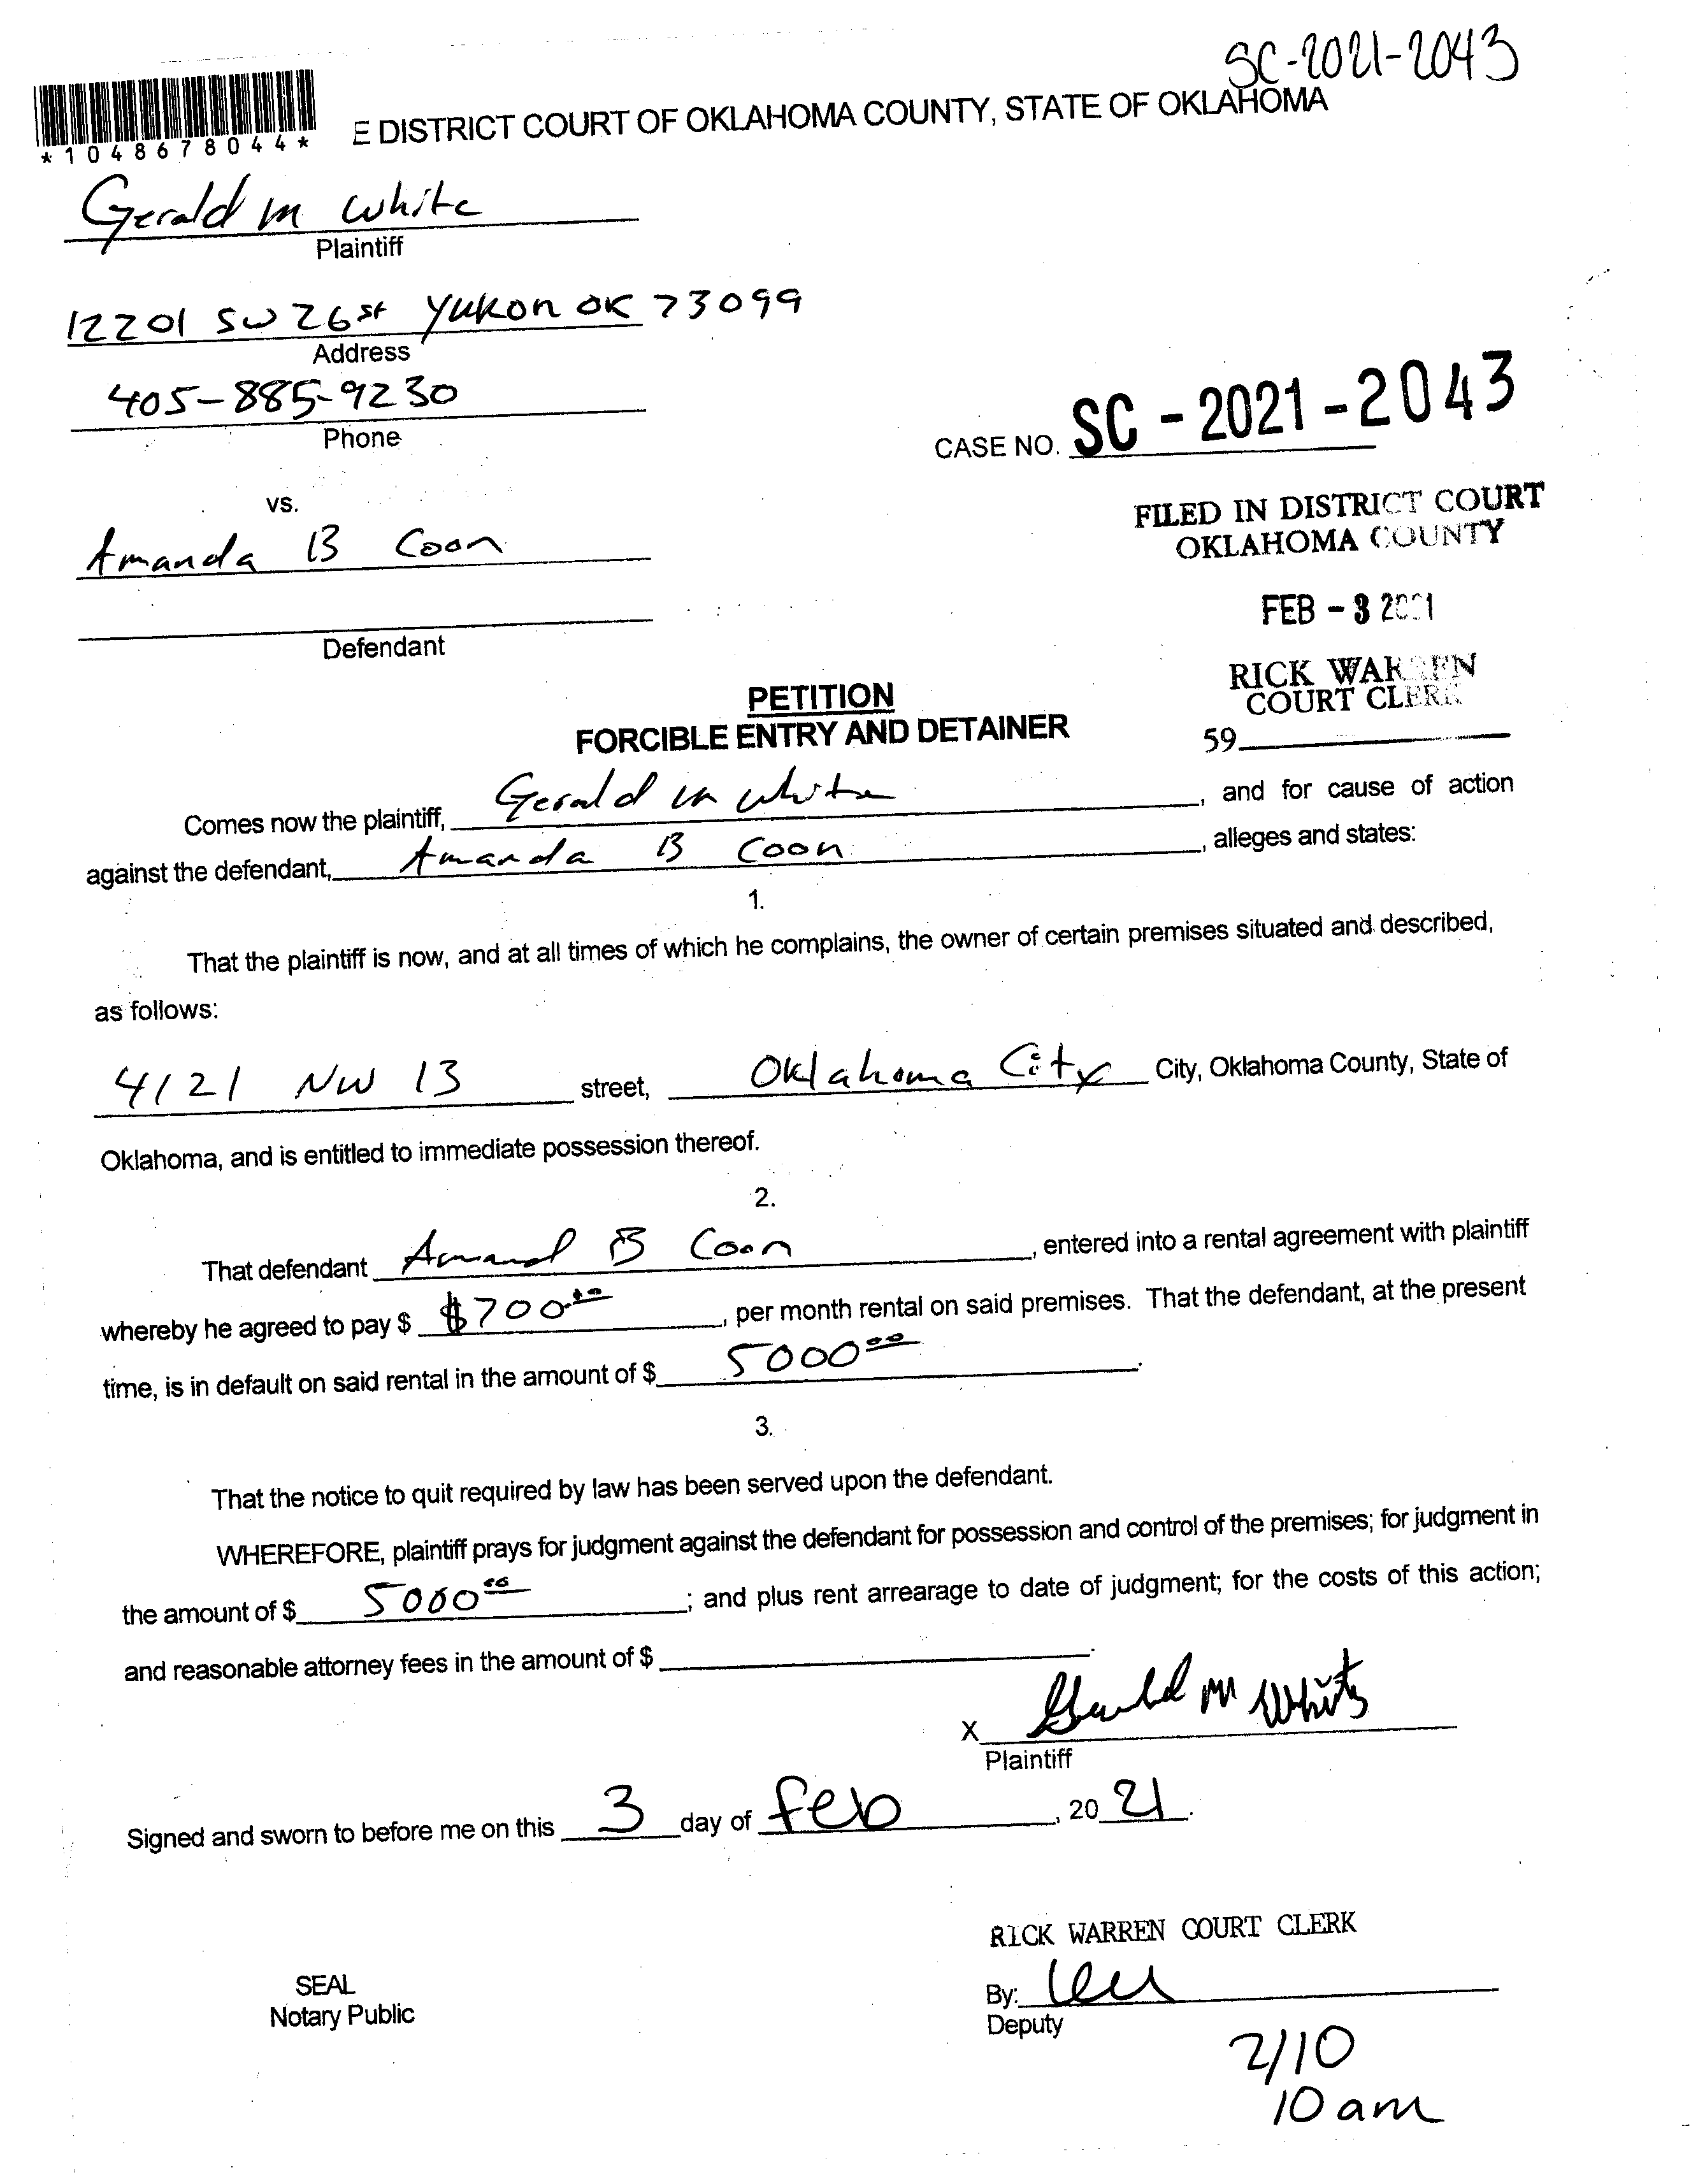 SC-2021-2043
*1048678044*
E DISTRICT COURT OF OKLAHOMA COUNTY, STATE OF OKLAHOMA
Gerald M White
Plaintiff
12201 SW 26 st Yukon OK 73099
Address
405-885-9230
Phone
CASE NO. SC-2021-2043
vs.
FILED IN DISTRICT COURT
OKLAHOMA COUNTY
Amanda B Coon
FEB - 3 2021
Defendant
RICK WARREN
COURT CLERK
PETITION
FORCIBLE ENTRY AND DETAINER
59
Comes now the plaintiff, Gerald M White, and for cause of action
against the defendant, Amanda B Coon, alleges and states:
1.
That the plaintiff is now, and at all times of which he complains, the owner of certain premises situated and described,
as follows:
4121 NW 13 street, Oklahoma City City, Oklahoma County, State of
Oklahoma, and is entitled to immediate possession thereof.
2.
That defendant Amand B Coon, entered into a rental agreement with plaintiff
whereby he agreed to pay $ $700.00, per month rental on said premises. That the defendant, at the present
time, is in default on said rental in the amount of $ 5000 00.
3.
That the notice to quit required by law has been served upon the defendant.
WHEREFORE, plaintiff prays for judgment against the defendant for possession and control of the premises; for judgment in
the amount of $ 5000 00; and plus rent arrearage to date of judgment; for the costs of this action;
and reasonable attorney fees in the amount of $ .
X Gerald M White
Plaintiff
Signed and sworn to before me on this 3 day of Feb, 20 21.
RICK WARREN COURT CLERK
SEAL
Notary Public
By:
Deputy
2/10
10 am